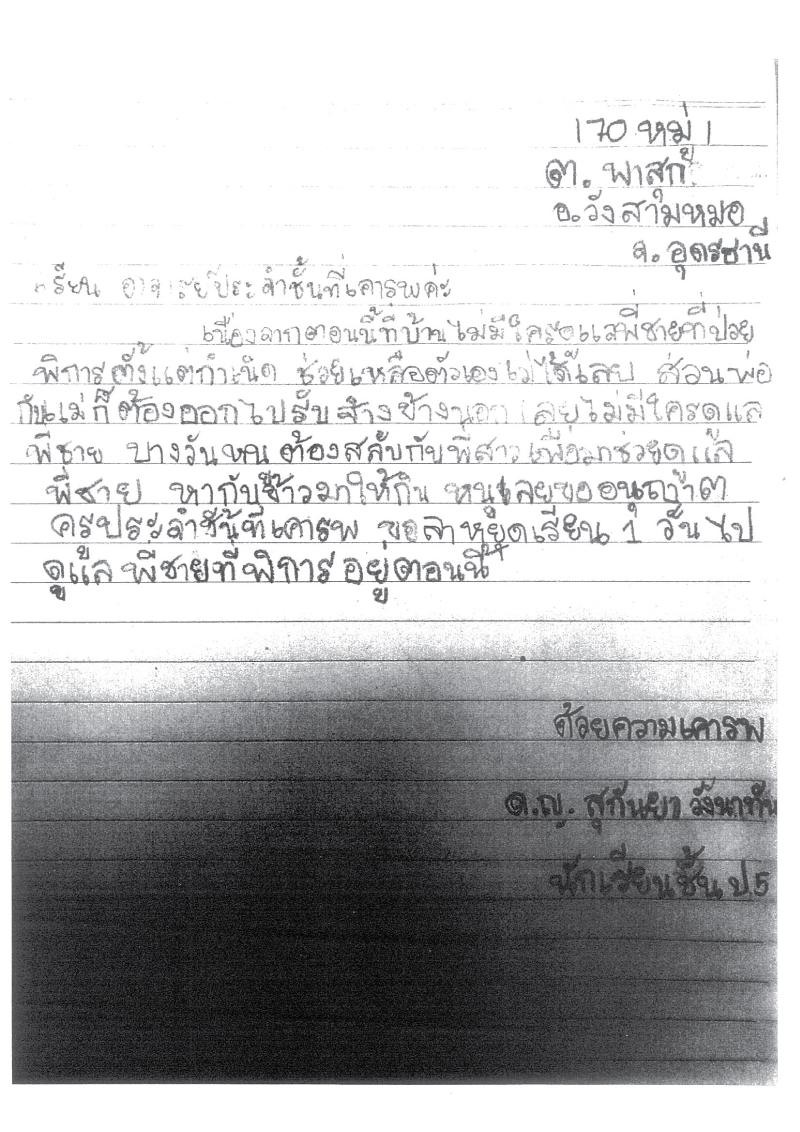 170 หมู่ 1
ต. ผาสุก
อ. วังสามหมอ
จ. อุดรธานี
เรียน อาจารย์ประจำชั้นที่เคารพค่ะ
เนื่องจากตอนนี้ที่บ้านไม่มีใครดูแลพี่ชายที่ป่วย
พิการตั้งแต่กำเนิด ช่วยเหลือตัวเองไม่ได้เลย ส่วนพ่อ
กับแม่ก็ต้องออกไปรับจ้างข้างนอก เลยไม่มีใครดูแล
พี่ชาย บางวันหนูต้องสลับกับพี่สาวเพื่อมาช่วยดูแล
พี่ชาย หากับข้าวมาให้กิน หนูเลยขออนุญาต
ครูประจำชั้นที่เคารพ ขอลาหยุดเรียน 1 วัน ไป
ดูแลพี่ชายที่พิการอยู่ตอนนี้
ด้วยความเคารพ
ด.ญ. สุกันยา วังนาทัน
นักเรียนชั้น ป.5